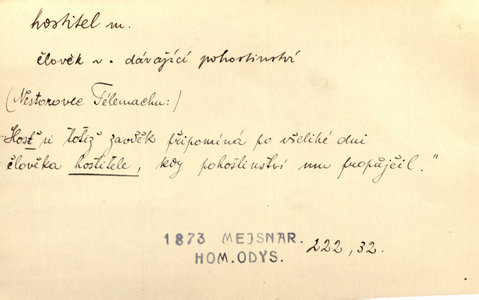 hostitel m.
člověk v. dávající pohostinství
(Nestorovec Télemachu:)
Host si totiž zavděk připomíná po všeliké dni
člověka hostitele, kdy pohostinství mu propůjčil."
1873 MEJSNAR. 222, 32.
HOM. ODYS.